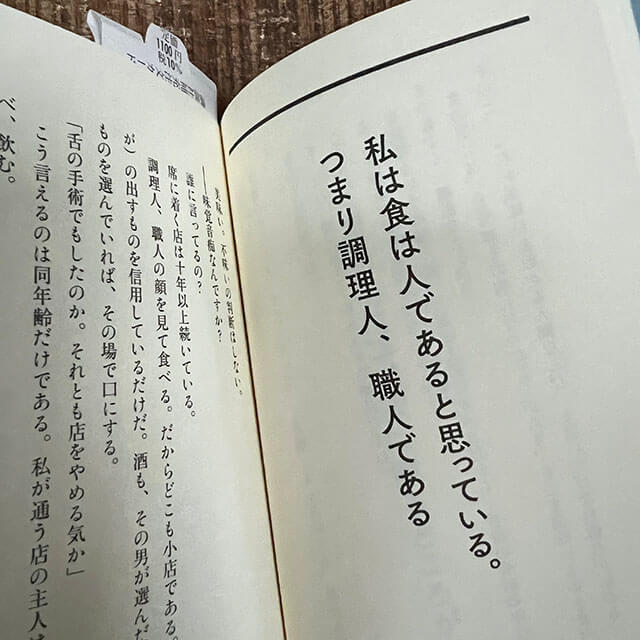 私は食は人であると思っている。
つまり調理人、職人である
美味い、不味いの判断はしない。
──味覚音痴なんですか？
誰に言ってるの？
席に着く店は十年以上続いている。
調理人、職人の顔を見て食べる。だからどこも小店である。
が）の出すものを信用しているだけだ。酒も、その男が選んだ
ものを選んでいれば、その場で口にする。
「舌の手術でもしたのか。それとも店をやめる気か」
こう言えるのは同年齢だけである。私が通う店の主人は
べ、飲む。
定価
1100円
税10%